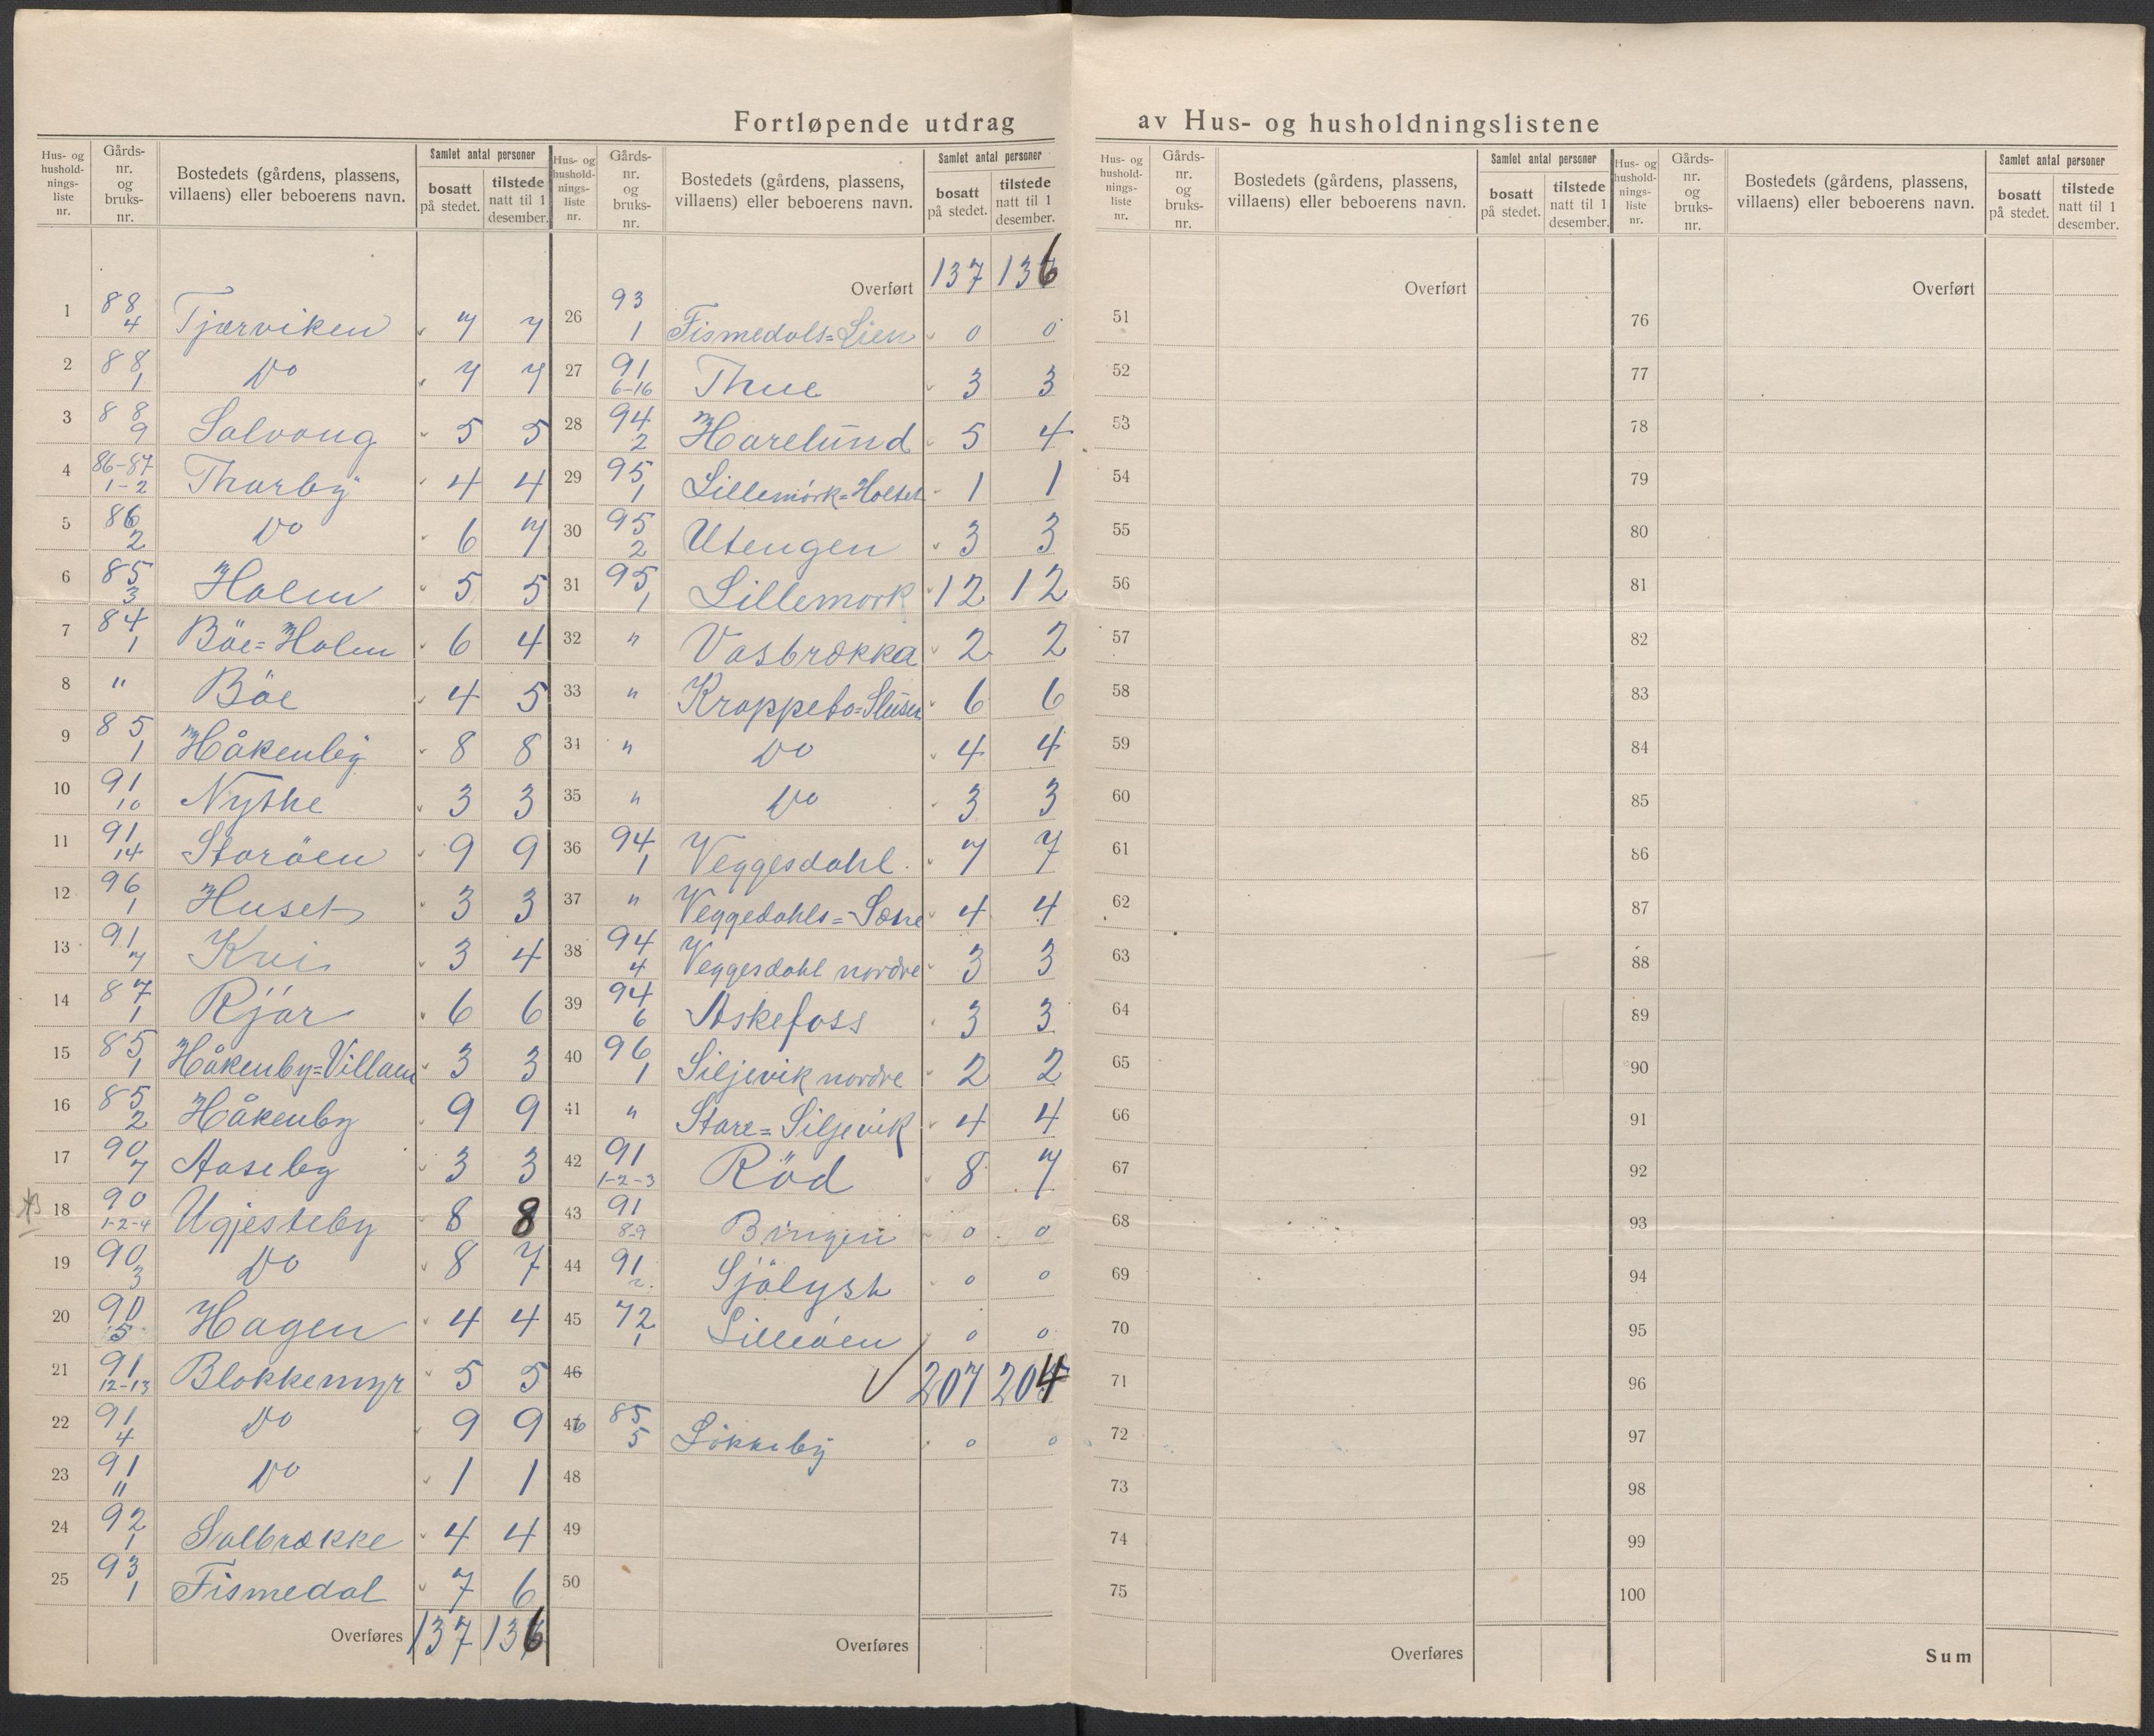 Fortløpende utdrag av Hus- og husholdningslistene
Hus- og hushold-nings-liste nr. | Gårds-nr. og bruks-nr. | Bostedets (gårdens, plassens, villaens) eller beboerens navn. | Samlet antal personer | bosatt på stedet. | tilstede natt til 1 desember.
1 88 4 Tjærviken 7 7
2 88 1 Do 7 7
3 88 9 Solvang 5 5
4 86-87 1-2 Thorby 4 4
5 86 2 Do 6 7
6 85 3 Holm 5 5
7 84 1 Böe=Holm 6 4
8 " Böe 4 5
9 85 1 Håkenby 8 8
10 91 10 Nythe 3 3
11 91 14 Storöen 9 9
12 96 1 Huset 3 3
13 91 7 Kvi 3 4
14 87 1 Rjör 6 6
15 85 1 Håkenby=Villaen 3 3
16 85 2 Håkenby 9 9
17 90 7 Aaseby 3 3
18 90 1-2-4 Ugjesteby 8 8
19 90 3 Do 8 7
20 90 5 Hagen 4 4
21 91 12-13 Blokkemyr 5 5
22 91 4 Do 9 9
23 91 11 Do 1 1
24 92 1 Solbrække 4 4
25 93 1 Fismedal 7 6
Overføres 137 136
Hus- og hushold-nings-liste nr. | Gårds-nr. og bruks-nr. | Bostedets (gårdens, plassens, villaens) eller beboerens navn. | Samlet antal personer | bosatt på stedet. | tilstede natt til 1 desember.
Overført 137 136
26 93 1 Fismedals=Lien 0 0
27 91 6-16 Thue 3 3
28 94 2 Harelund 5 4
29 95 1 Lillemörk=Holtet 1 1
30 95 2 Utengen 3 3
31 95 1 Lillemörk 12 12
32 " Vasbrække 2 2
33 " Kroppebo=Slusen 6 6
34 " Do 4 4
35 " Do 3 3
36 94 1 Veggesdahl 7 7
37 " Veggedahls= 4 4
38 94 4 Veggesdahl nordre 3 3
39 94 6 Askefoss 3 3
40 96 1 Siljevik nordre 2 2
41 " Store=Siljevik 4 4
42 91 1-2-3 Röd 8 7
43 91 8-9 Bingen 0 0
44 91 2 Sjölyst 0 0
45 72 1 Lilleöen 0 0
46 207 204
46 85 5 Lökkeby 0 0
48
49
50
Overføres
Hus- og hushold-nings-liste nr. | Gårds-nr. og bruks-nr. | Bostedets (gårdens, plassens, villaens) eller beboerens navn. | Samlet antal personer | bosatt på stedet. | tilstede natt til 1 desember.
Overført
51
52
53
54
55
56
57
58
59
60
61
62
63
64
65
66
67
68
69
70
71
72
73
74
75
Overføres
Hus- og hushold-nings-liste nr. | Gårds-nr. og bruks-nr. | Bostedets (gårdens, plassens, villaens) eller beboerens navn. | Samlet antal personer | bosatt på stedet. | tilstede natt til 1 desember.
Overført
76
77
78
79
80
81
82
83
84
85
86
87
88
89
90
91
92
93
94
95
96
97
98
99
100
Sum